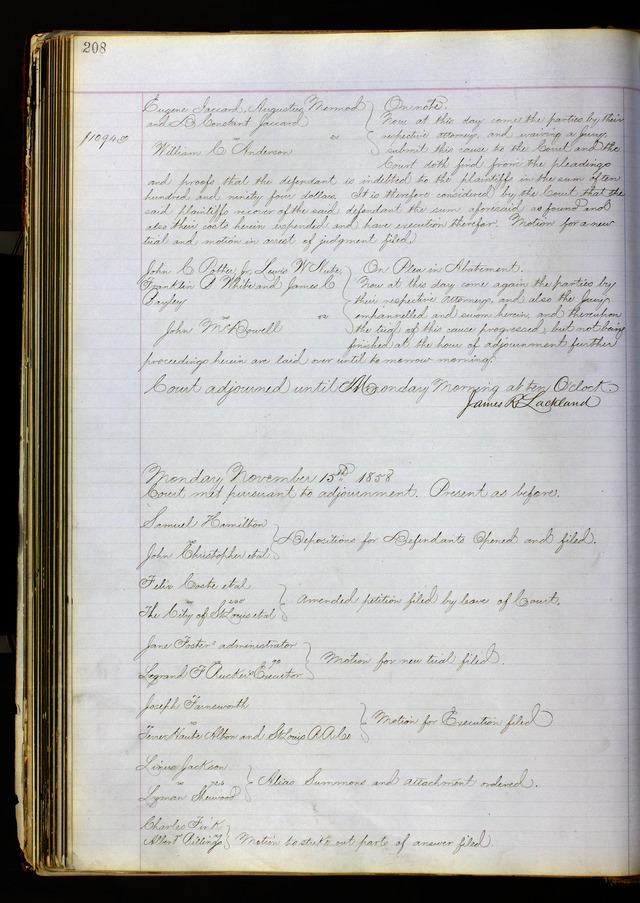 208
Eugene Jaccard, Augustus Mermod } On note.
and D. Constant Jaccard Now at this day come the parties by their
$1094.00 vs respective attorneys, and waiving a Jury,
William C Anderson submit this cause to the Court and the
Court doth find from the pleadings
and proofs that the defendant is indebted to the plaintiffs in the sum of ten
hundred and ninety four dollars. It is therefore considered by the Court that the
said plaintiffs recover of the said defendant the sum aforesaid as found and
also their costs herein expended and have execution therefor. Motion for a new
trial and motion in arrest of judgment filed.
John C Potter Jr, Lewis W } On Plea in Abatement.
Franklin P White and James C Now at this day come again the parties by
Bayley their respective Attorneys, and also the Jury
vs empannelled and sworn herein, and thereupon
John McDowell the trial of this cause progressed, but not being
finished at the hour of adjournment further
proceedings herein are laid over until to morrow morning.
Court adjourned until Monday Morning at ten O'clock.
James R. Lackland
Monday November 15th 1858
Court met pursuant to adjournment. Present as before.
Samuel Hamilton
vs } Depositions for Defendants Opened and filed.
John Christopher et al
Felix Coste et al
vs } Amended petition filed by leave of Court.
The City of St Louis et al
Jane Foster administrator
vs } Motion for new trial filed.
Legrand F Rucker Executor
Joseph Farnsworth
vs } Motion for Execution filed
Terre Haute Alton and St Louis R.R. Co
Linus Jackson
vs } Alias Summons and attachment ordered.
Lyman Sherwood
Charles Fink
vs } Motion to strike out parts of answer filed.
Albert Billings